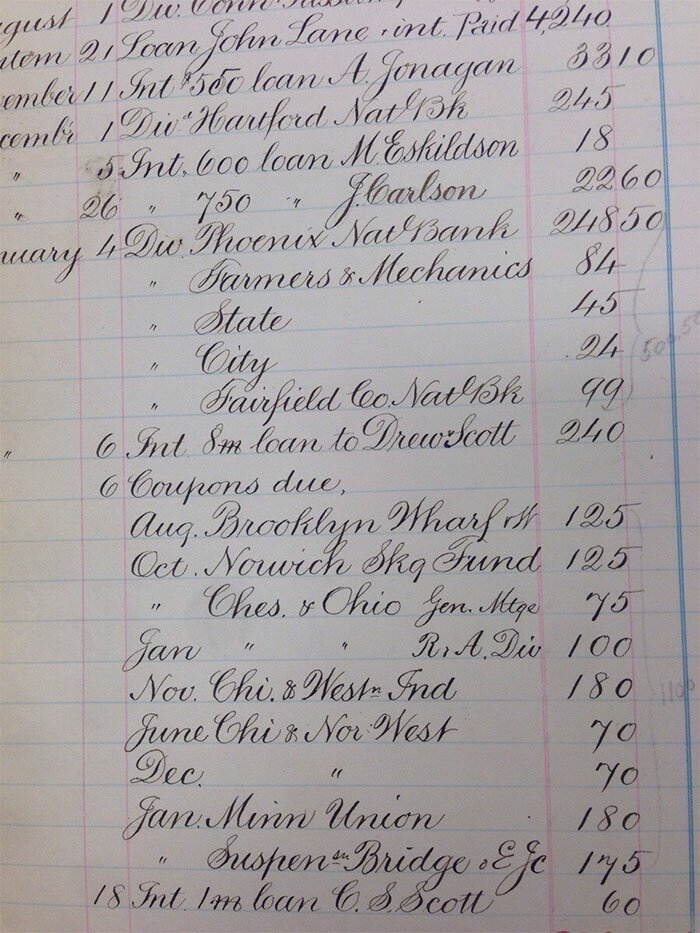 August 1 Div. Conn
tem 21 Loan John Lane & int. Paid 4,240
vember 11 Int $550 loan A. Jonagan 33 10
cembr 1 Div Hartford Natl Bk 245
" 5 Int. 600 loan M. Eskildson 18
" 26 " 750 " J. Carlson 22 60
nuary 4 Div Phoenix Natl Bank 248 50
" Farmers & Mechanics 84
" State 45
" City 24
" Fairfield Co. Natl Bk 99
" 6 Int 8m loan to Drew Scott 240
6 Coupons due,
Aug. Brooklyn Wharf 125
Oct. Norwich Skg Fund 125
" Ches. & Ohio Gen. Mtge 75
Jan " " R & A. Div 100
Nov. Chi. & Westn Ind 180
June Chi & Nor West 70
Dec. " 70
Jan. Minn Union 180
" Suspensn Bridge & E Jc 175
18 Int 1m loan C. S. Scott 60